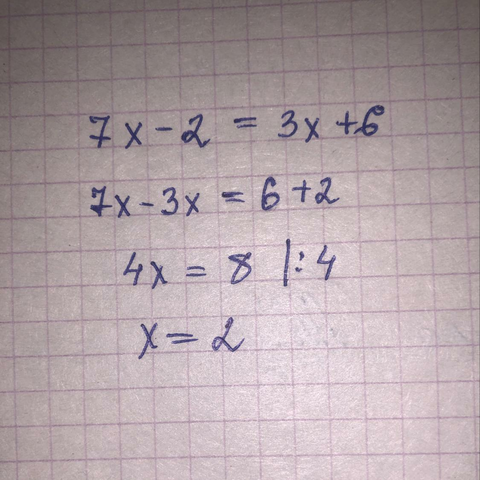 7x-2 = 3x+6
7x-3x = 6+2
4x = 8 |:4
x = 2